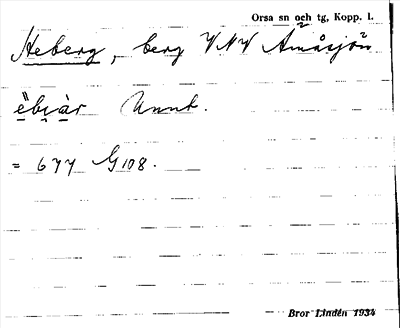 Orsa sn och tg, Kopp. l.
Heberg, berg VNV Åmåsjön
= 677 G108.
Bror Lindén 1934